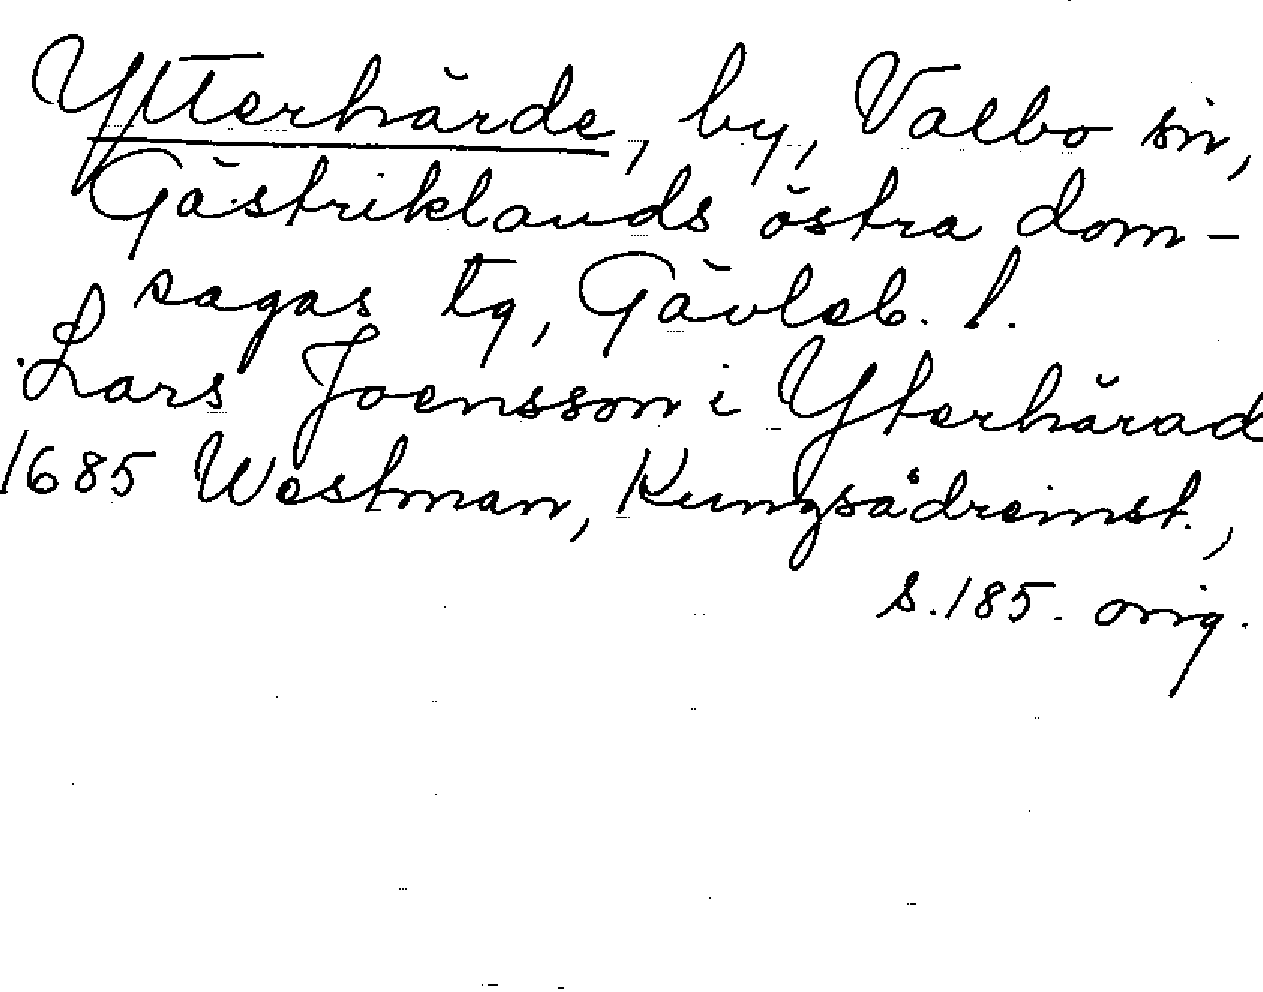 Ytterhärde, by, Valbo sn,
Gästriklands östra dom-
sagas tg, Gävleb. l.
Lars Joensson i Yterhärad
1685 Westman, Kungsådreinst.,
s. 185. orig.